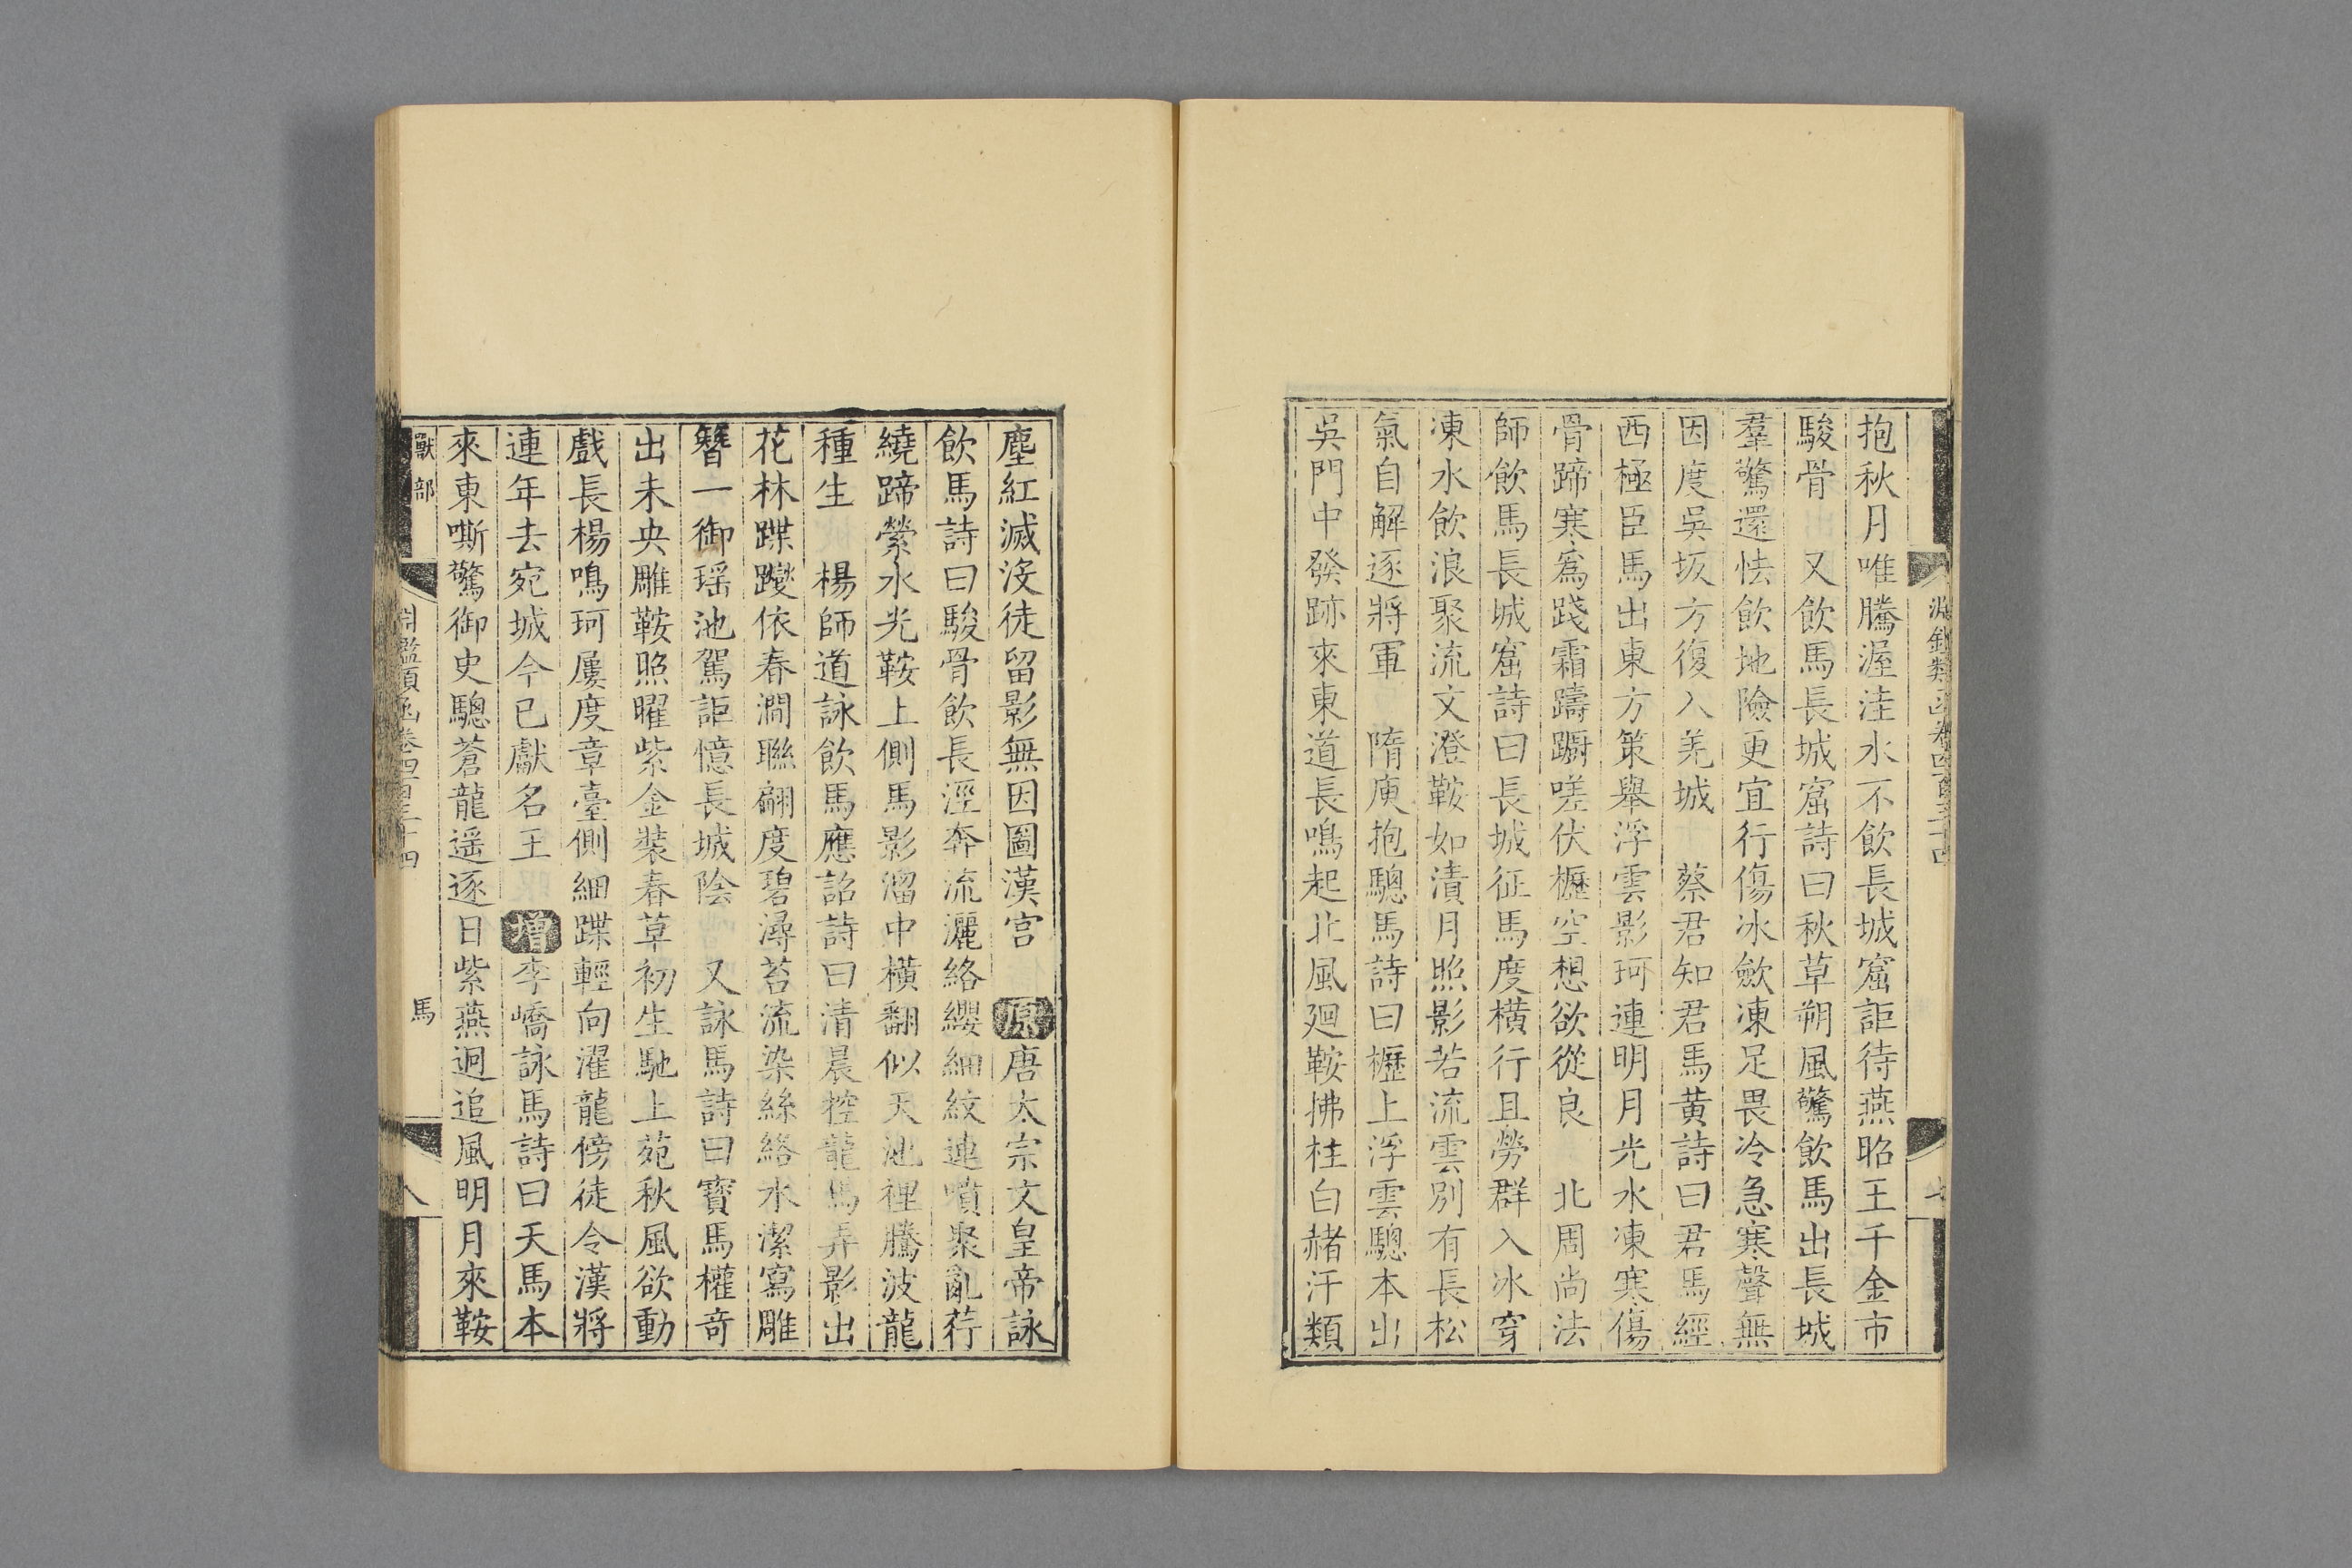 抱秋月唯騰渥洼水不飲長城窟詎待燕昭王千金市
駿骨 又飲馬長城窟詩曰秋草朔風驚飲馬出長城
羣驚還怯飲地險更宜行傷冰斂凍足畏冷急寒聲無
因度吳坂方復入羌城 蔡君知君馬黃詩曰君馬經
西極臣馬出東方策舉浮雲影珂連明月光水凍寒傷
骨蹄寒爲踐霜躊躕嗟伏櫪空想欲從良 北周尚法
師飲馬長城窟詩曰長城征馬度橫行且勞群入冰穿
凍水飲浪聚流文澄鞍如漬月照影若流雲別有長松
氣自解逐將軍 隋庾抱驄馬詩曰櫪上浮雲驄本出
吳門中發跡來東道長鳴起北風廻鞍拂桂白赭汗類
塵紅滅沒徒留影無因圖漢宮 原唐太宗文皇帝詠
飲馬詩曰駿骨飲長涇奔流灑絡纓細紋連噴聚亂荇
繞蹄縈水光鞍上側馬影溜中橫翻似天池裡騰波龍
種生 楊師道詠飲馬應詔詩曰清晨控龍馬弄影出
花林蹀躞依春澗聯翩度碧潯苔流染絲絡水潔寫雕
簪一御瑶池駕詎憶長城陰 又詠馬詩曰寶馬權奇
出未央雕鞍照曜紫金裝春草初生馳上苑秋風欲動
戲長楊鳴珂屢度章臺側細蹀輕向濯龍傍徒令漢將
連年去宛城今已獻名王 增李嶠詠馬詩曰天馬本
來東嘶驚御史驄蒼龍遥逐日紫燕迥追風明月來鞍
獸部
淵鑑類函卷四百三十四
馬
八